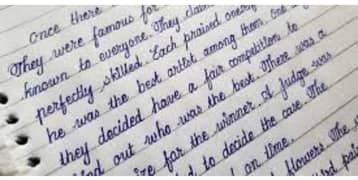 Once there
They were famous for
known to everyone. They
perfectly skilled. Each praised
he was the best artist among them. One
they decided have a fair competition to
out who was the best. There was a
for the winner. A judge was
to decide the case. The
on time.
flowers. The